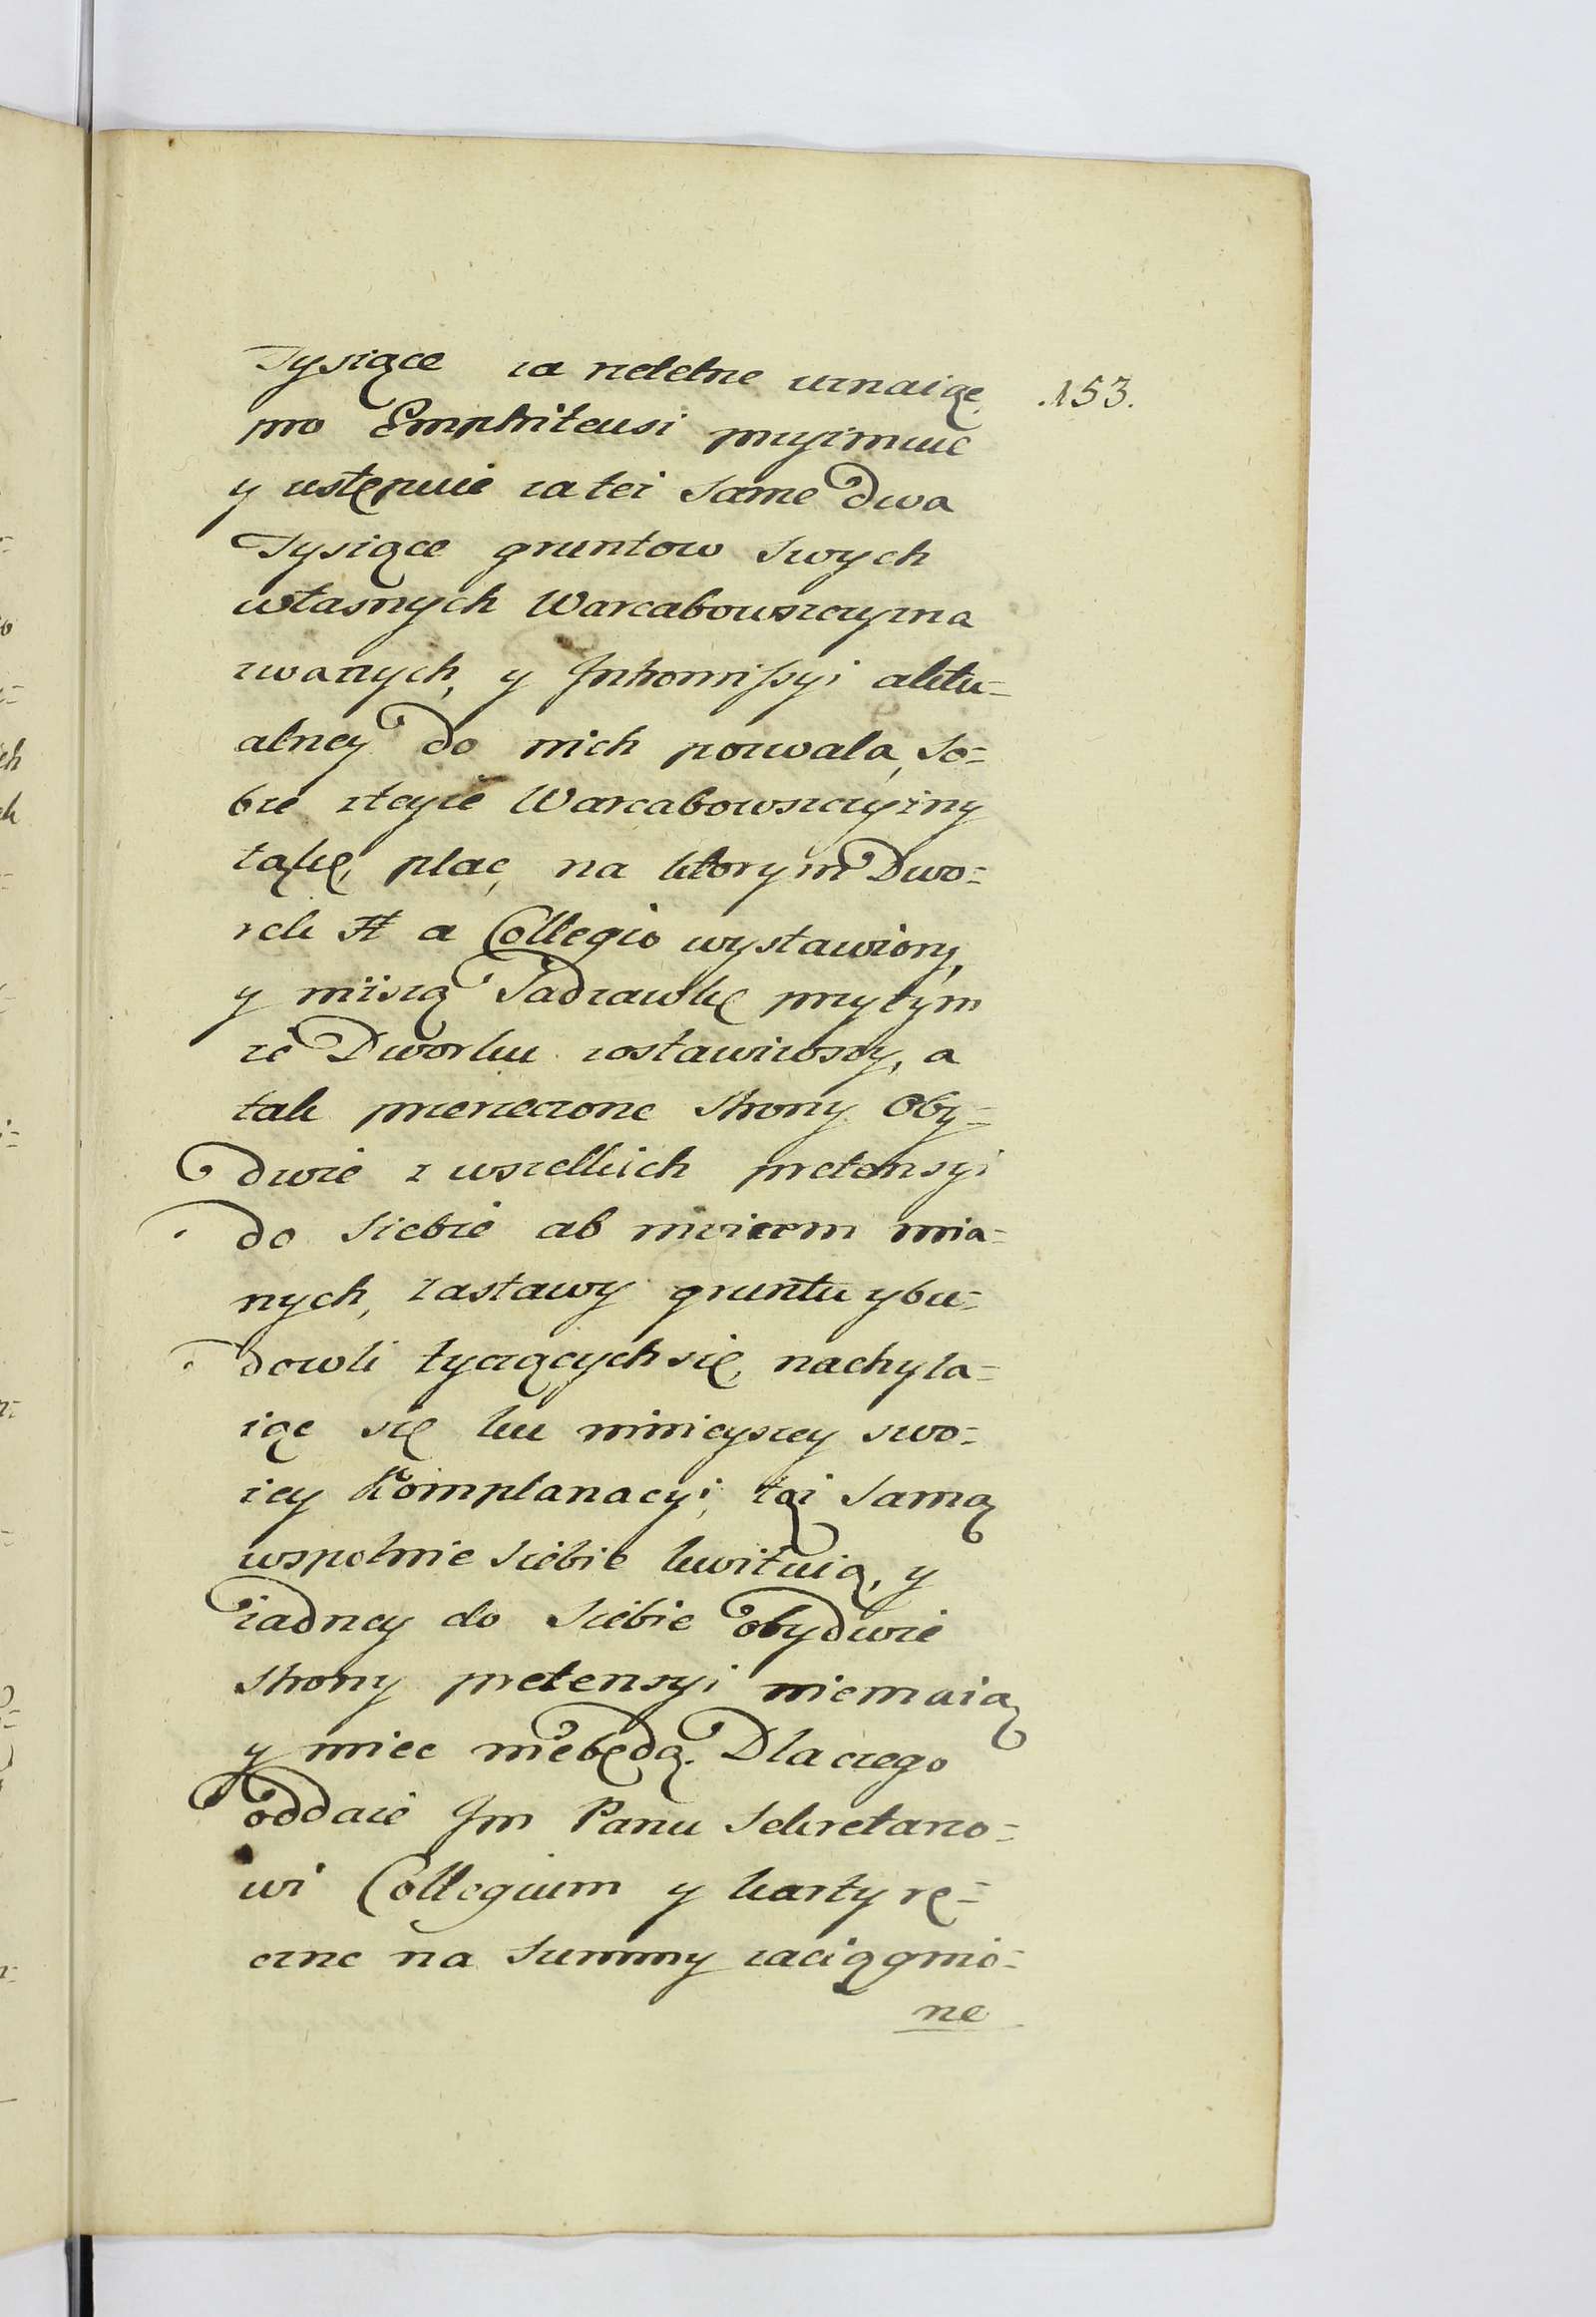 Tysiące za rzetelne uznaiąc, .153.
pro Emphiteusi przyimuie
y ustępuie za też same dwa
Tysiące gruntow swych
własnych Warcabowszczyzna
zwanych, y Intromissyi aktu=
alney do nich pozwala, so=
bie z teyże Warcabowszczyzny
łąkę, plac, na ktorym Dwo=
rek a Collegio wystawiony,
y niższą Sadzawkę przytym
że Dworku zostawiwszy, a
tak przerzeczone strony Oby=
dwie z wszelkich pretensyi
do siebie ab invicem mia=
nych, zastawy gruntu y bu=
dowli tyczących się, nachyla=
iąc się ku ninieyszey swo=
iey Komplanacyi, tąż samą
wspolnie siebie kwituią, y
żadney do siebie obydwie
strony pretensyi niemaią
y miec niebędą. Dlaczego
oddaie Jm Panu Sekretarzo=
wi Collegium y karty rę=
czne na Summy zaciągnio=
ne